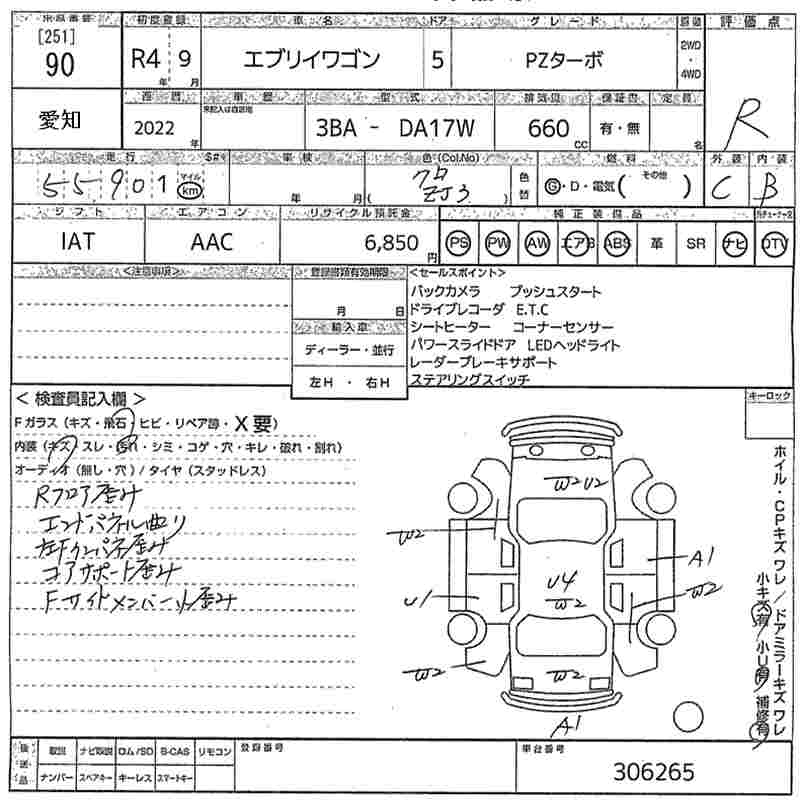 出品番号 初度登録 車名 ドア グレード 装置 評価点
[251]
90 R4 9 エブリイワゴン 5 PZターボ 2WD・4WD
年 月
愛知 車歴 型式 排気量 保証書 定員 R
2022 年 未記入は自家用 3BA - DA17W 660 CC 有・無 名
走行 S#* 車検 色(Col.No) 燃料 外装 内装
55901 マイル km 年 月 ( ZJ3 ) 色替 G・D・電気( その他 ) C B
シフト エアコン リサイクル預託金 純正装備品
IAT AAC 6,850 円 PS PW AW エアB ABS 革 SR ナビ DTV
<注意事項> 登録書類有効期限 <セールスポイント>
月 日
輸入車
ディーラー・並行
左H ・ 右H
バックカメラ プッシュスタート
ドライブレコーダ E.T.C
シートヒーター コーナーセンサー
パワースライドドア LEDヘッドライト
レーダーブレーキサポート
ステアリングスイッチ
キーロック
< 検査員記入欄 >
Fガラス (キズ・飛石) ヒビ・リペア跡・X要)
内装 (キズ) スレ・汚れ・シミ・コゲ・穴・キレ・破れ・割れ)
オーディオ (無し・穴) / タイヤ (スタッドレス)
Rフロア歪み
エンドパネル曲り
左Fインパネ歪み
コアサポート歪み
Fサイドメンバー歪み
W2 U2
W2
A1
U4
W2
W2
U1
W2
W2
A1
ホイル・CPキズ ワレ / ドアミラーキズ ワレ
小キズ有 / 小U有 補修有
後送品 取説 ナビ取説 ロム/SD B-CAS リモコン 登録番号 車台番号
ナンバー スペアキー キーレス スマートキー 306265